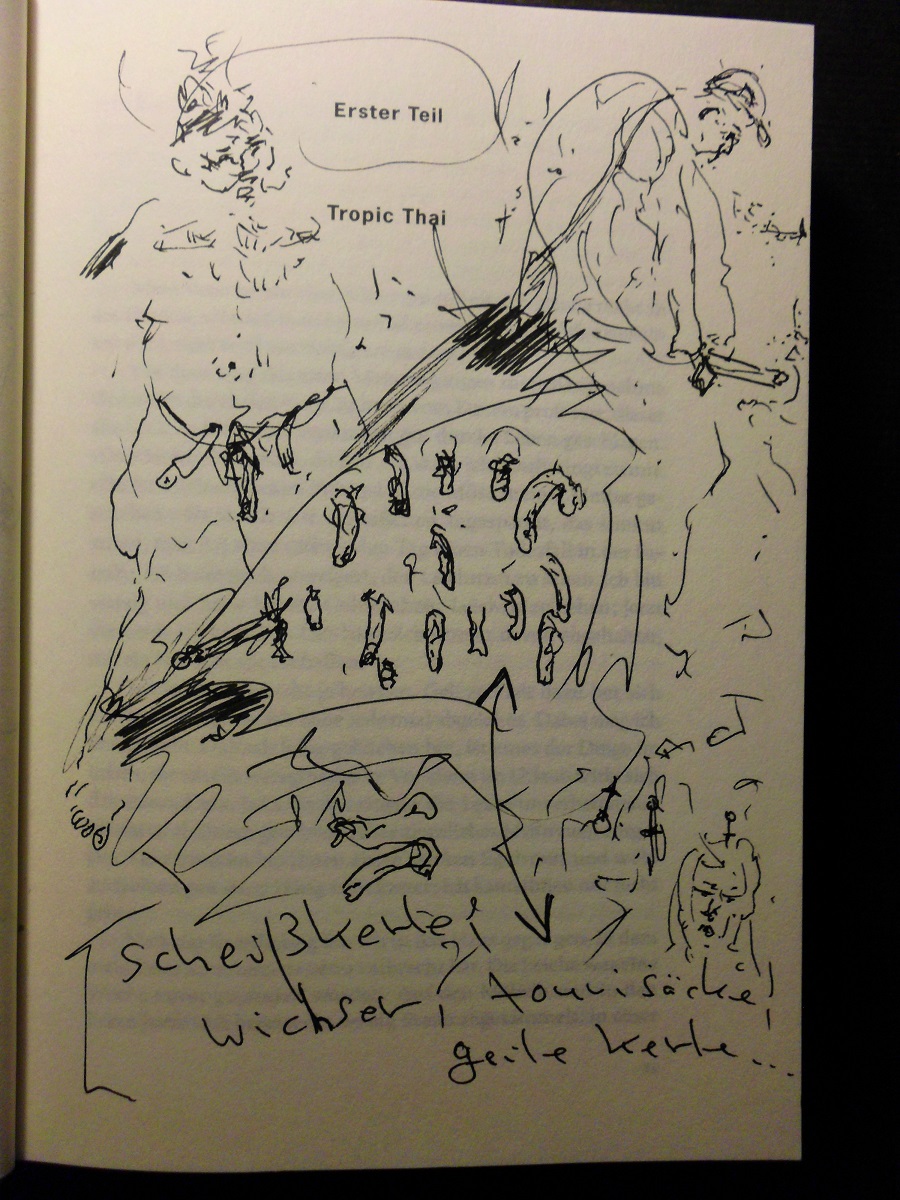 Erster Teil
Tropic Thai
Scheißkerle!
wichser! tourisäcke!
geile kerle...